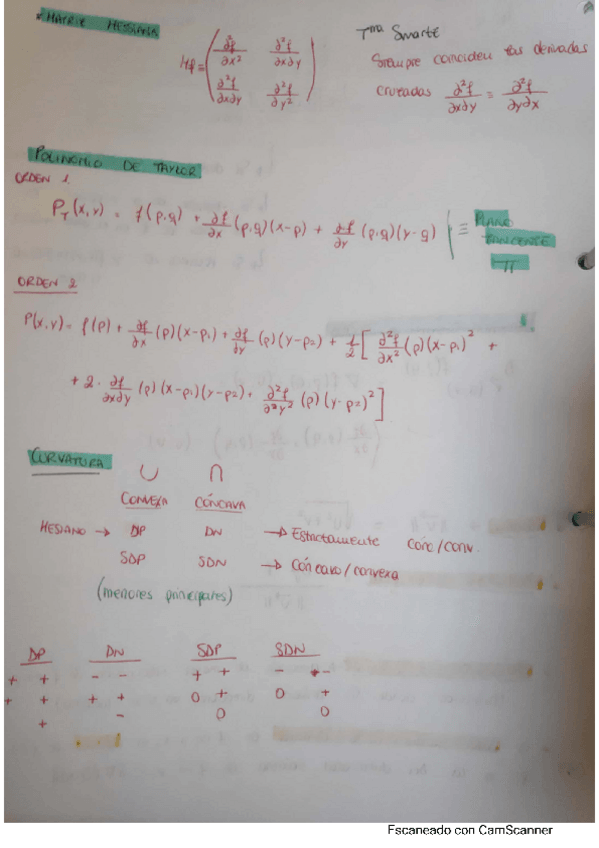 * MATRIX HESSIANA
Tma Swarte
Hf = ( ∂²f/∂x² ∂²f/∂x∂y
∂²f/∂x∂y ∂²f/∂y² )
Siempre coinciden las derivadas
cruzadas ∂²f/∂x∂y = ∂²f/∂y∂x
POLINOMIO DE TAYLOR
ORDEN 1.
P_T(x,y) = f(p,q) + ∂f/∂x (p,q)(x-p) + ∂f/∂y (p,q)(y-q) ≡ PLANO
TANGENTE
π
ORDEN 2
P(x,y) = f(p) + ∂f/∂x (p)(x-p₁) + ∂f/∂y (p)(y-p₂) + 1/2 [ ∂²f/∂x² (p)(x-p₁)² +
+ 2 · ∂f/∂x∂y (p)(x-p₁)(y-p₂) + ∂²f/∂²y² (p)(y-p₂)² ]
CURVATURA ∪ ∩
CONVEXA CÓNCAVA
HESIANO → DP DN → Estactamente cónc/conv.
SDP SDN → Cóncava/convexa
(menores principales)
DP DN SDP SDN
+ + - - + + - -
+ + + + 0 + 0 +
+ - 0 0
Escaneado con CamScanner